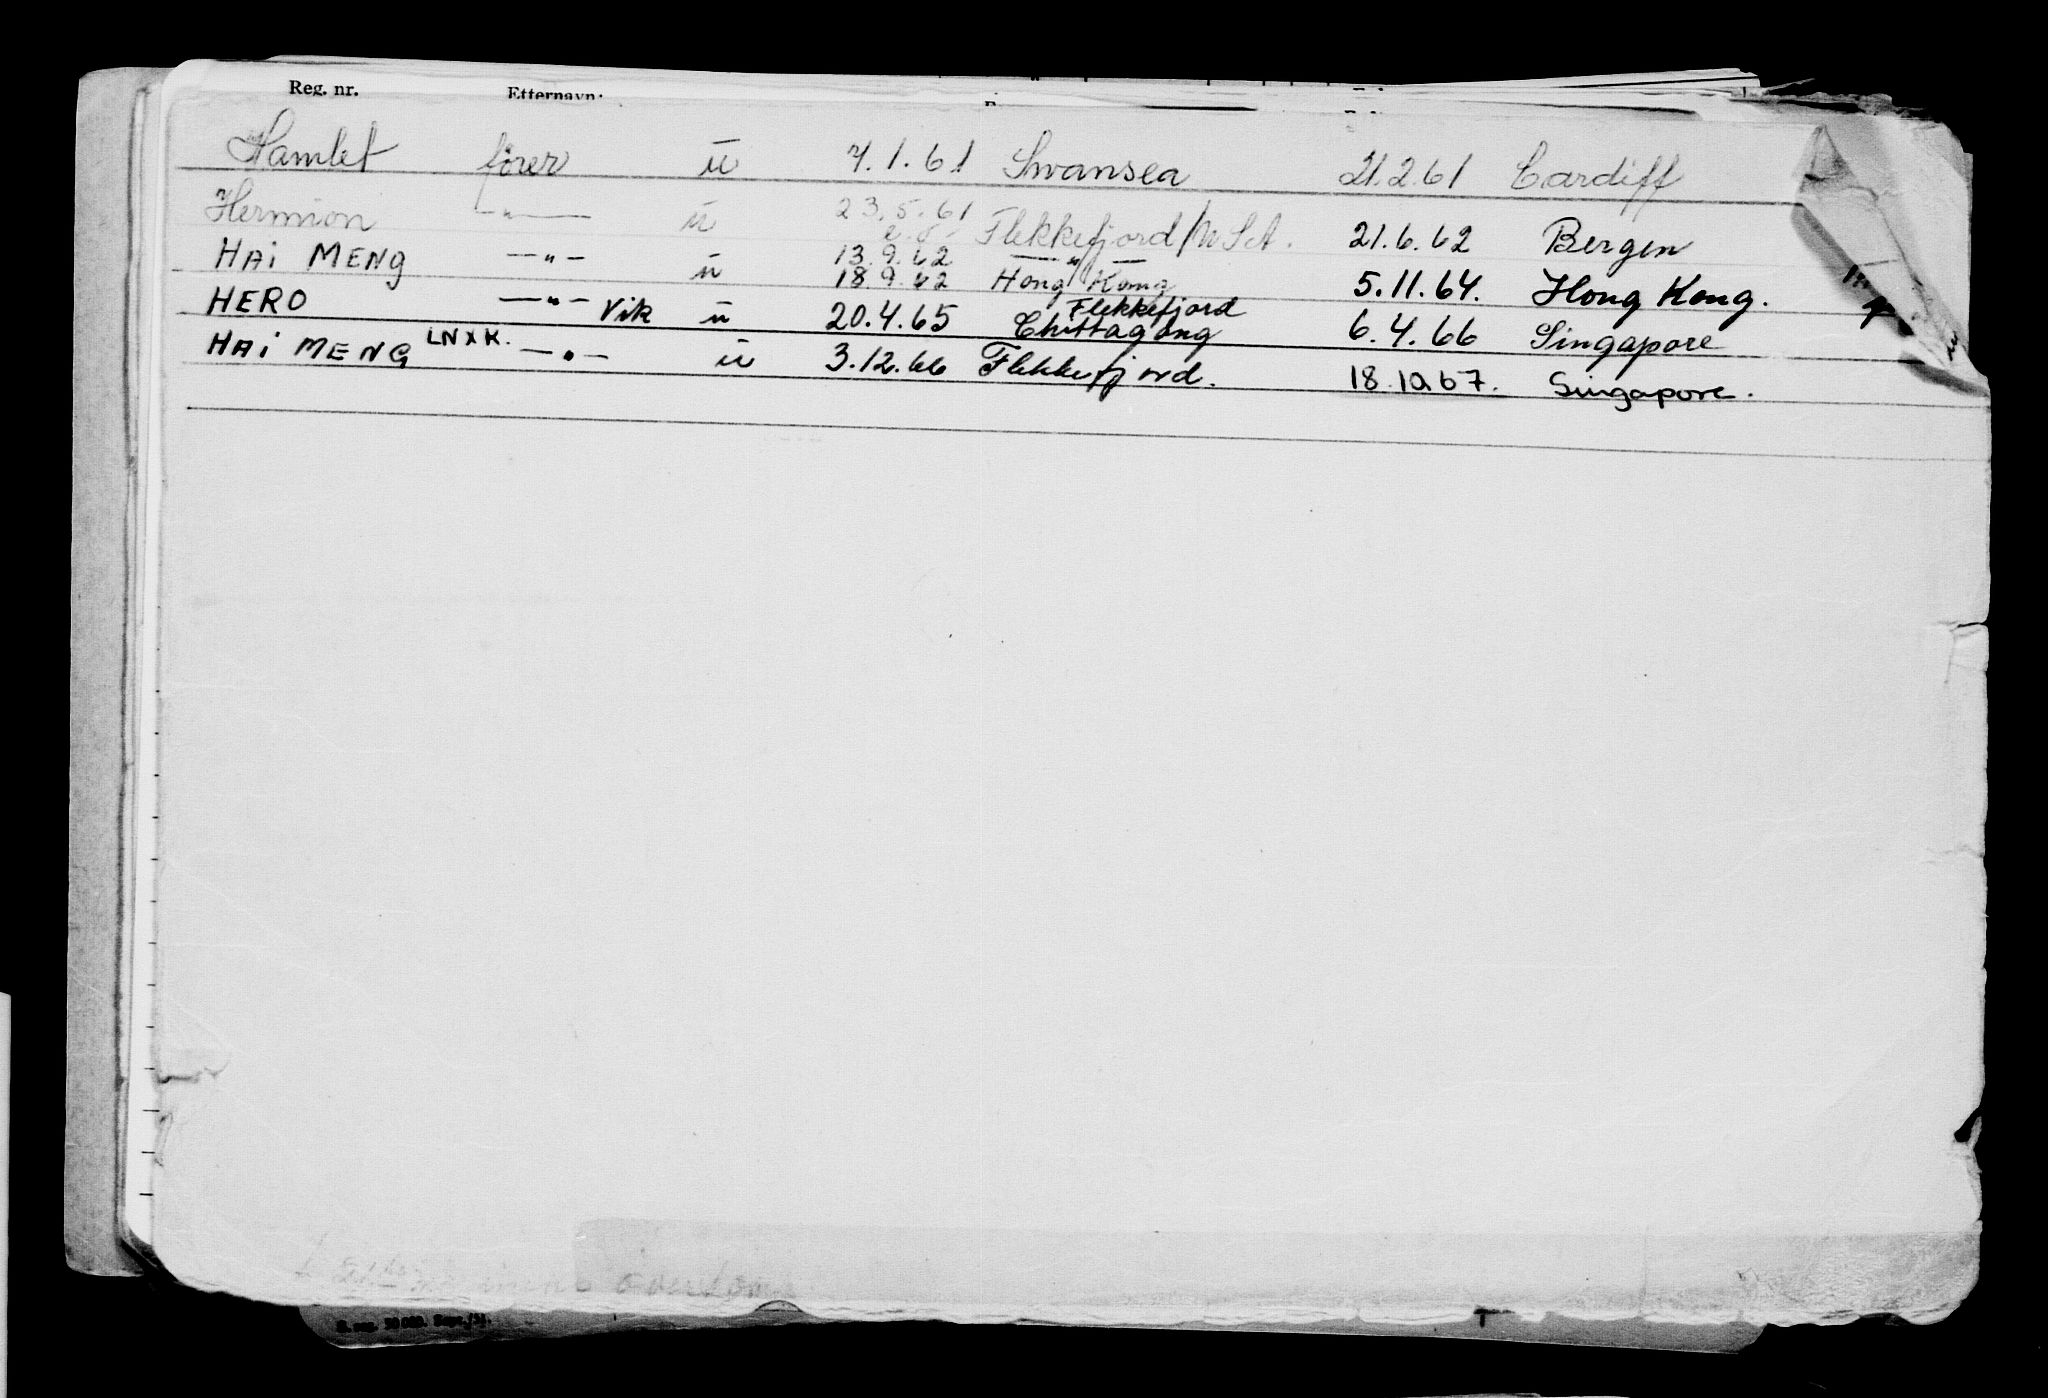 Reg. nr. Etternavn:
Hamlet fører u 7.1.61 Swansea 21.2.61 Cardiff
Hermion —"— u 23.5.61 Flekkefjord/ 21.6.62 Bergen
HAI MENG —"— u 13.9.62 —"—
18.9.62 Hong Kong 5.11.64. Hong Kong.
HERO —"— Vik u 20.4.65 Flekkefjord
Chittagong 6.4.66 Singapore
HAI MENG LNXK. —"— u 3.12.66 Flekkefjord. 18.10.67. Singapore.